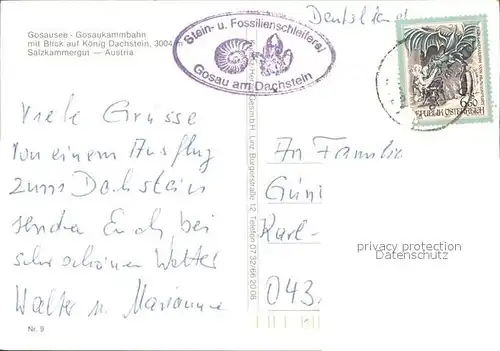 Gosausee - Gosaukammbahn
mit Blick auf König Dachstein, 3004
Salzkammergut — Austria
Stein- u. Fossilienschleiferei
Gosau am Dachstein
Viele Grüsse
von einem Ausflug
zum Dachstein
senden Euch bei
sehr schönem Wetter
Walter u. Marianne
Nr. 9
Linz Burgerstraße 12 Telefon 07 32/66 20 08
REPUBLIK ÖSTERREICH
An Familie
Karl-
043
privacy protection
Datenschutz